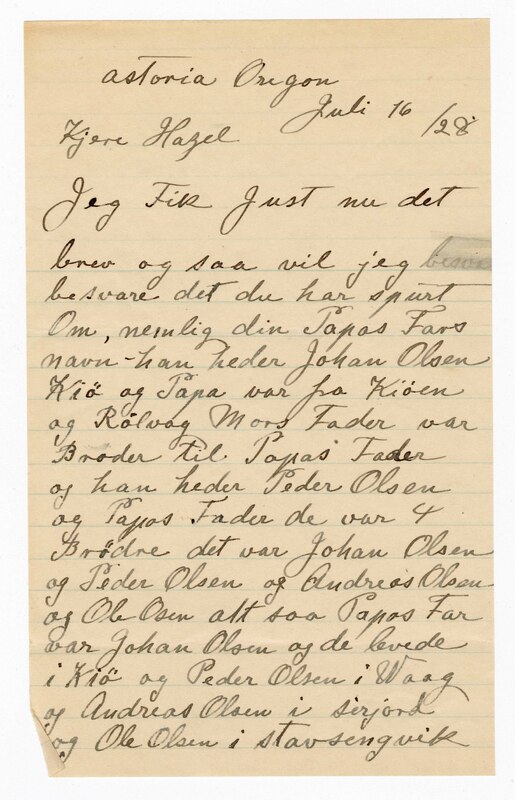 astoria Oregon
Juli 16 /28
Kjere Hazel
Jeg Fik Just nu det
brev og saa vil jeg
besvare det du har spurt
Om, nemlig din Papas Fars
navn - han heder Johan Olsen
Kiö og Papa var fra Kiöen
og Rölvag Mors Fader var
Broder til Papas Fader
og han heder Peder Olsen
og Papas Fader de var 4
Brödre det var Johan Olsen
og Peder Olsen og Andreas Olsen
og Ole Osen alt saa Papas Far
var Johan Olsen og de levede
i Kiö og Peder Olsen i Waag
og Andreas Olsen i serjord
og Ole Olsen i stavsengvik